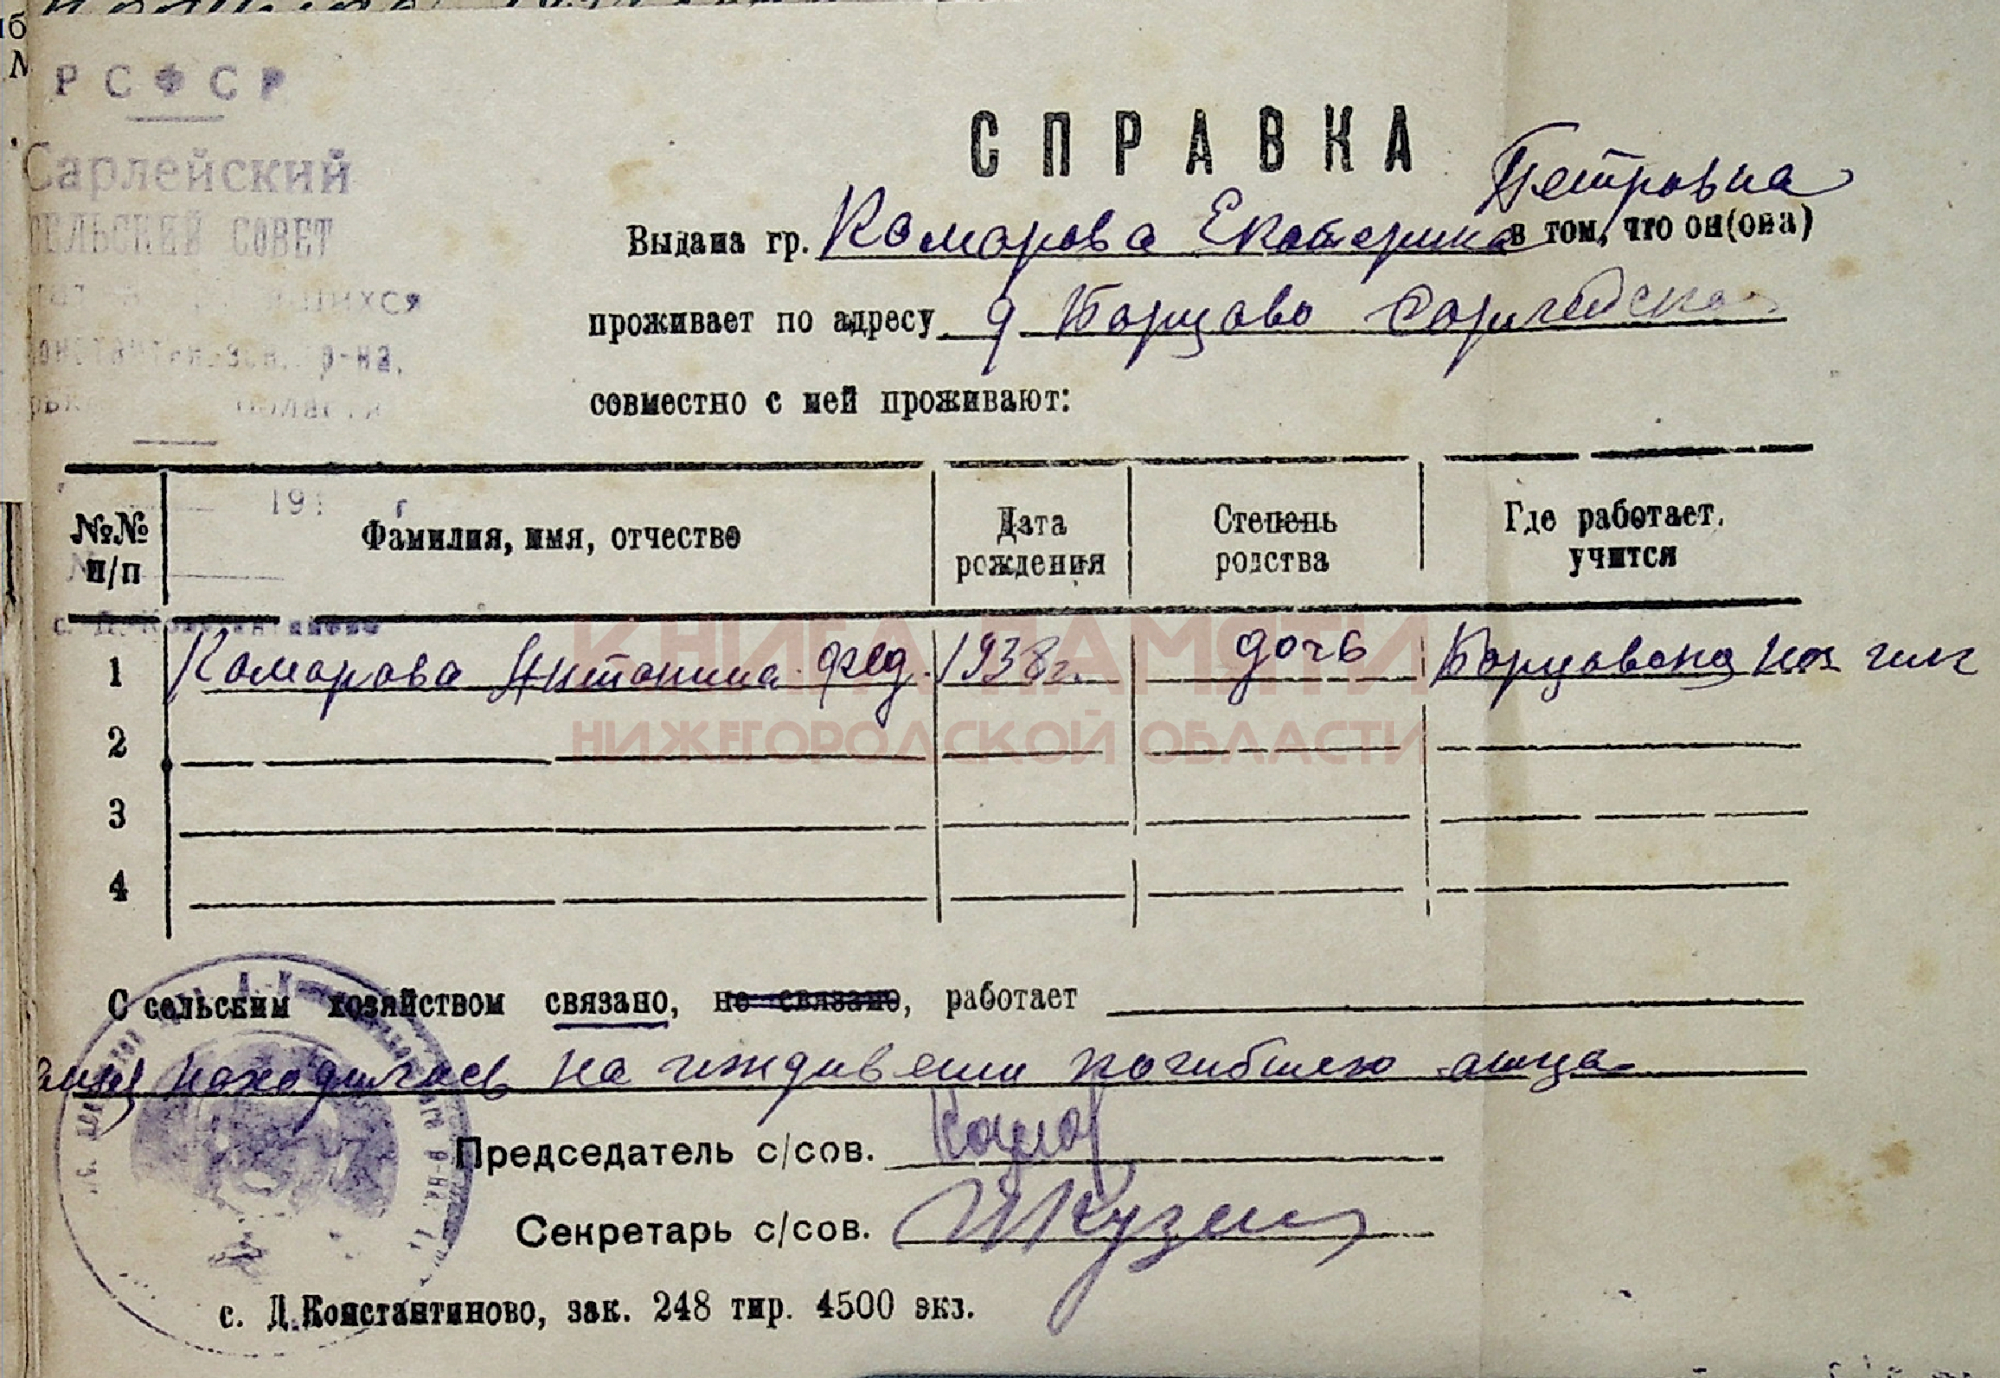 РСФСР
Сарлейский
СЕЛЬСКИЙ СОВЕТ
р-на,
области
191 г
СПРАВКА
Петровна
Выдана гр. Комарова Екатерина в том, что он(она)
проживает по адресу д Борцово Сарлейско
совместно с ней проживают:
№№ п/п
Фамилия, имя, отчество
Дата рождения
Степень родства
Где работает, учится
1 Комарова Антонина Фед. 1938г. дочь Борцовская
2
3
4
КНИГА ПАМЯТИ
НИЖЕГОРОДСКОЙ ОБЛАСТИ
С сельским хозяйством связано, не связано, работает
находилась на иждивении погибшего отца
Председатель с/сов. Комар
Секретарь с/сов. Кузен
с. Д.Константиново, зак. 248 тир. 4500 экз.